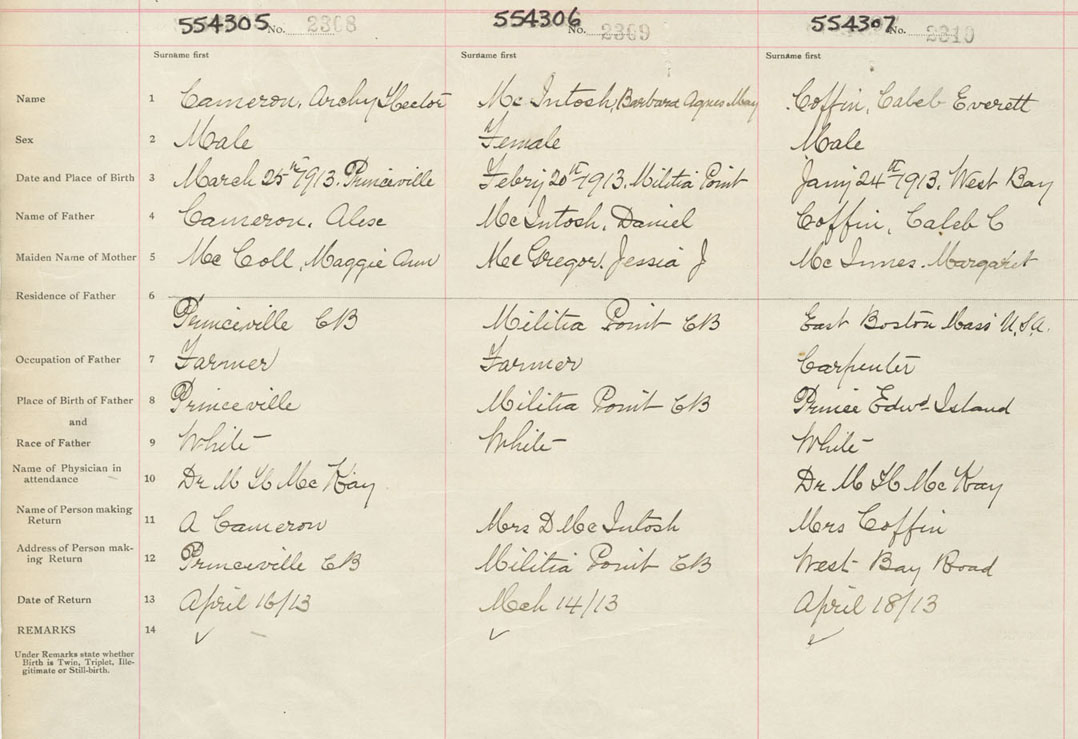 554305 No. 2368 554306 No. 2369 554307 No. 2310
Surname first Surname first Surname first
Name 1 Cameron, Archy Hector Mc Intosh, Barbara Agnes May Coffin, Caleb Everett
Sex 2 Male Female Male
Date and Place of Birth 3 March 25th 1913. Princeville Febry 20th 1913. Militia Point Jany 24th 1913. West Bay
Name of Father 4 Cameron, Alex Mc Intosh, Daniel Coffin, Caleb C
Maiden Name of Mother 5 Mc Coll, Maggie Ann Mc Gregor, Jessia J Mc Innes, Margaret
Residence of Father 6
Princeville CB Militia Point CB East Boston Mass U.S.A.
Occupation of Father 7 Farmer Farmer Carpenter
Place of Birth of Father 8 Princeville Militia Point CB Prince Edwd Island
and
Race of Father 9 White White White
Name of Physician in
attendance 10 Dr M H Mc Kay Dr M H Mc Kay
Name of Person making
Return 11 A Cameron Mrs D Mc Intosh Mrs Coffin
Address of Person mak-
ing Return 12 Princeville CB Militia Point CB West Bay Road
Date of Return 13 April 16/13 Mch 14/13 April 18/13
REMARKS 14 ✓ ✓ ✓
Under Remarks state whether
Birth is Twin, Triplet, Ille-
gitimate or Still-birth.